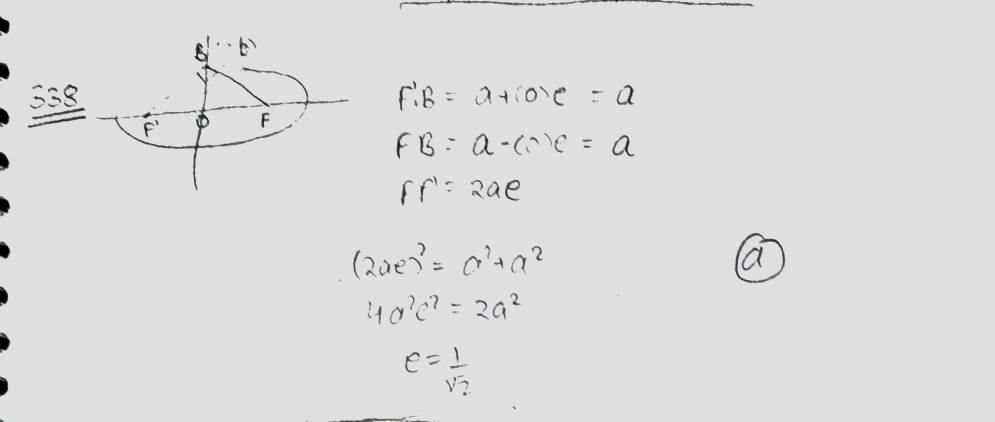 338
B (0, b)
F' O F
F'B = a+(0)e = a
FB = a-(0)e = a
FF' = 2ae
(2ae)² = a²+a²
4a²e² = 2a²
e = 1/√2
a